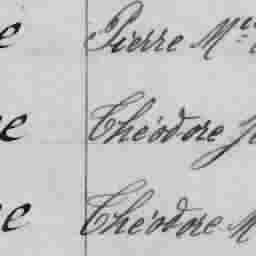 e Pierre M
e Théodore
e Théodore M